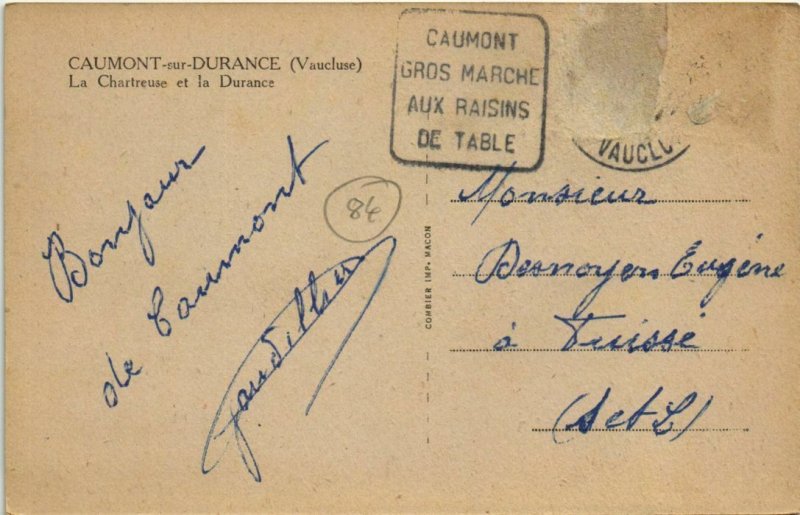 CAUMONT-sur-DURANCE (Vaucluse)
La Chartreuse et la Durance
CAUMONT
GROS MARCHE
AUX RAISINS
DE TABLE
VAUCLU
84
Bonjour
de Caumont
COMBIER IMP. MACON
Monsieur
Eugéne
à Fuissé
(S et L)